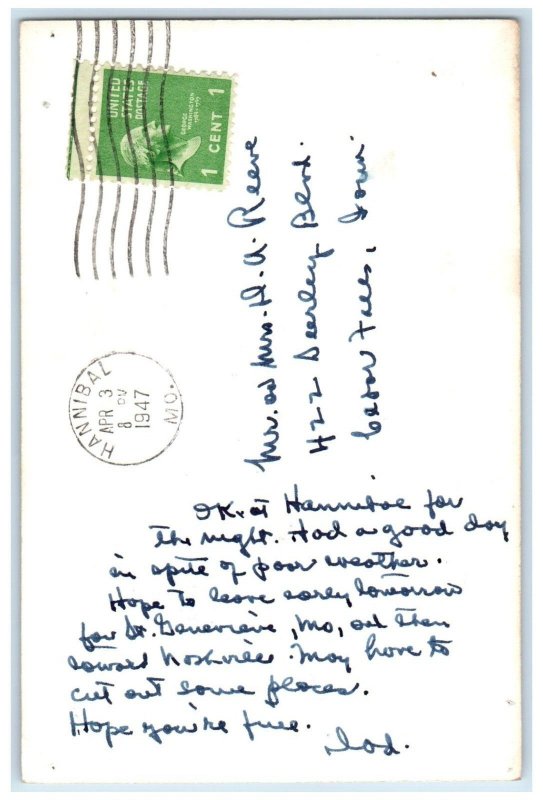 UNITED
STATES
POSTAGE
GEORGE
WASHINGTON
1789-1797
1 CENT 1
HANNIBAL
APR 3
8 PM
1947
MO.
Mr. and Mrs. H. A. Reeve
422 Seerley Blvd.
Cedar Falls, Iowa.
OK. at Hannibal for
the night. Had a good day
in spite of poor weather.
Hope to leave early tomorrow
for St. Genevieve, Mo, and then
toward Nashville. May have to
cut out some places.
Hope you're fine.